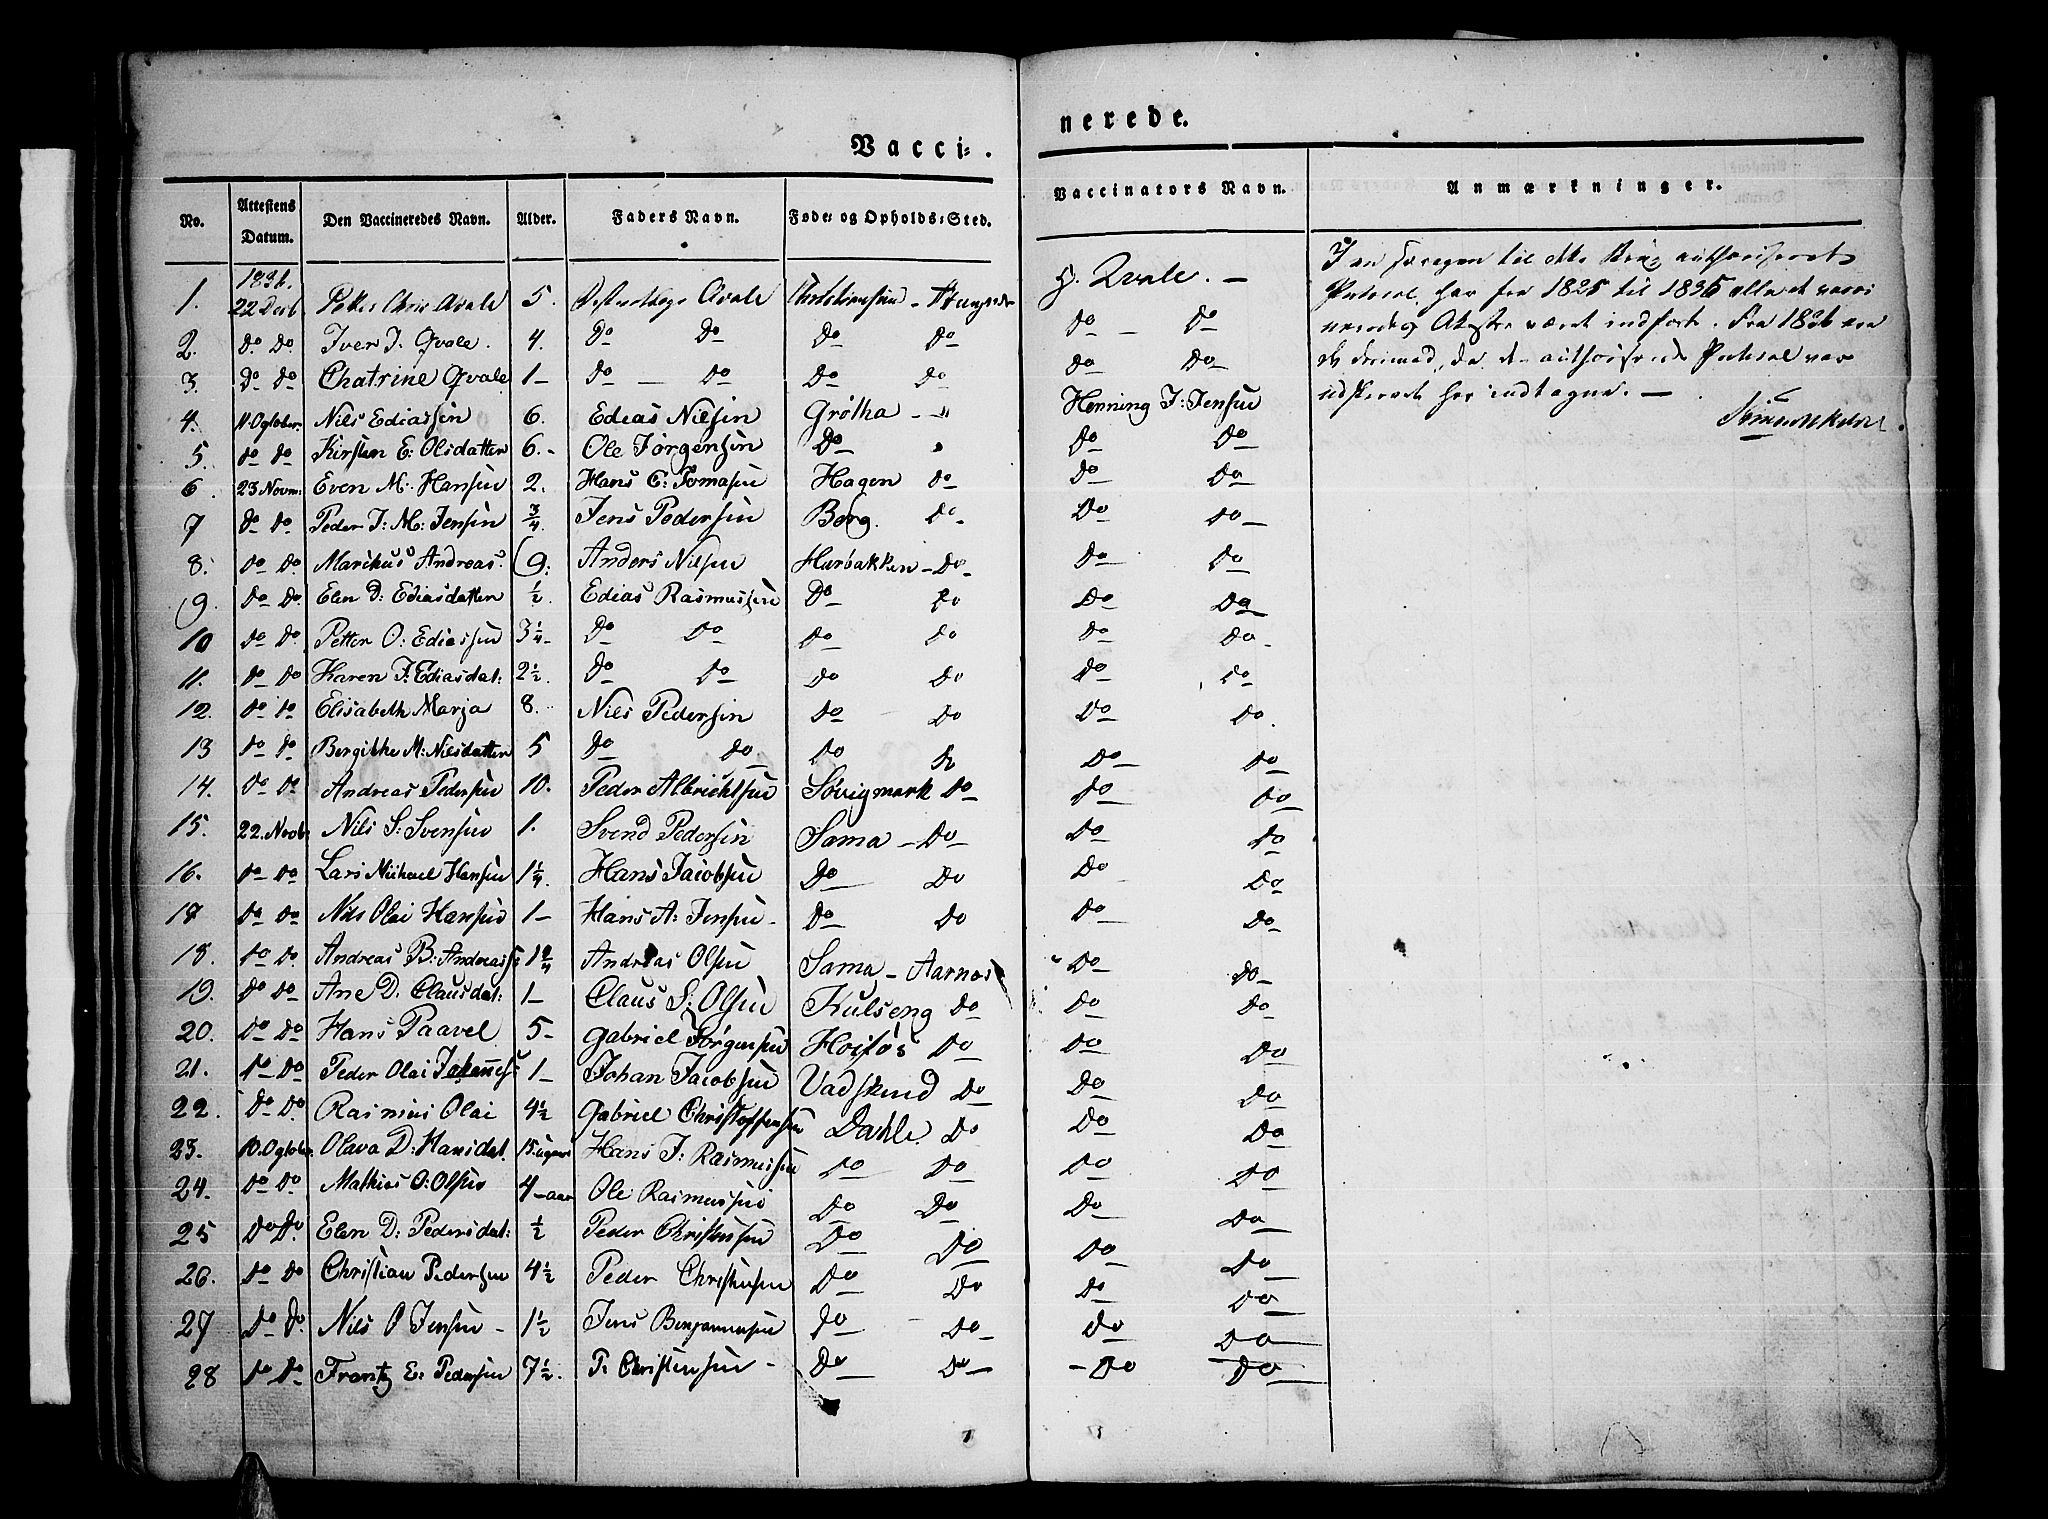 Vacci- nerede.
No. Attestens Datum. Den Vaccineredes Navn. Alder. Faders Navn. Føde- og Opholds-Sted. Vaccinators Navn. Anmærkninger.
1836.
1. 22 Decb Petter Chris Qvale 5. Qvale H. Qvale. —
2. Do Do Iver J: Qvale. 4. Do Do Do Do Do — Do
3. Do Do Chatrine Qvale 1 — Do — Do Do Do Do Do
4. 11. Ogtober. Nils Ediassen 6. Edias Nilsen Grøtha — " Henning J: Jensen
5. Do Do Kirsten E: Olsdatter 6. - Ole Jørgensen Do " Do Do
6. 23 Novm: Even M: Hansen 2. Hans C: Tomasen Hagen Do Do Do
7 Do Do Peder J: M: Jensen 3/4 Jens Pedersen Borg. Do - Do Do —
8. Do Do Marikus Andreas. 9. Anders Nilsen Hurbakken — Do - Do Do
9. Do Do Elen D: Ediasdatter 1/2. Edias Rasmussen Do Do Do Do
10 Do Do Petter O: Ediassen 3 1/4 - Do Do Do Do Do Do -
11. Do Do Karen J: Ediasdat: 2 1/2. Do Do Do Do Do Do
12. Do Do Elisabeth Marja 8. Nils Pedersen Do Do Do Do.
13 Do Do Bergithe M: Nilsdatter 5 Do Do Do Do Do Do
14. Do Do Andreas Pedersen 10. Peder Albrichtsen Søvigmark Do Do Do
15. 22. Novb: Nils S: Svensen 1. Svend Pedersen Sama — Do Do Do
16. Do Do Lars Michael Hansen 1 1/4. Hans Jacobsen Do Do Do Do
17 Do Do Nils Olai Hansen 1 — Hans A: Jensen - Do Do Do Do
18. Do Do. Andreas B: Andreass Andreas Olsen Sama — Aarnes Do Do —
19. Do Do Ane D. Clausdat: 1 — Claus S: Olsen Kulseng Do Do Do
20. Do Do Hans Paavel 5 - Gabriel Jørgensen Do Do Do
21. Do Do Peder Olai 1 — Johan Jacobsen Do Do Do
22. Do Do Rasmus Olai 4 1/2 Gabriel Christoffersen Dahle. Do Do Do
23. 10. Ogtober. Olava D: Hansdat. 15 uger Hans J: Rasmussen Do Do Do Do
24. Do Do. Mathias O: Olsen 4 — aar Ole Rasmussen Do Do Do Do
25 Do Do. Elen D: Pedersdat: 1/2 Peder Christensen Do Do Do Do
26. Do Do Christian Pedersen 4 1/2 Peder Christensen Do Do Do Do
27 Do Do. Nils O Jensen - 1 1/2 Jens Benjaminsen Do Do — Do Do
28 Do Do Frantz E: Pedersen 7 1/2. P: Christensen - Do Do — - Do Do
til dette authoriserede
Protocol, har fra 1825 til 1835
været indført. Fra 1836
da authoriserede Protocol var
her indtagne. —